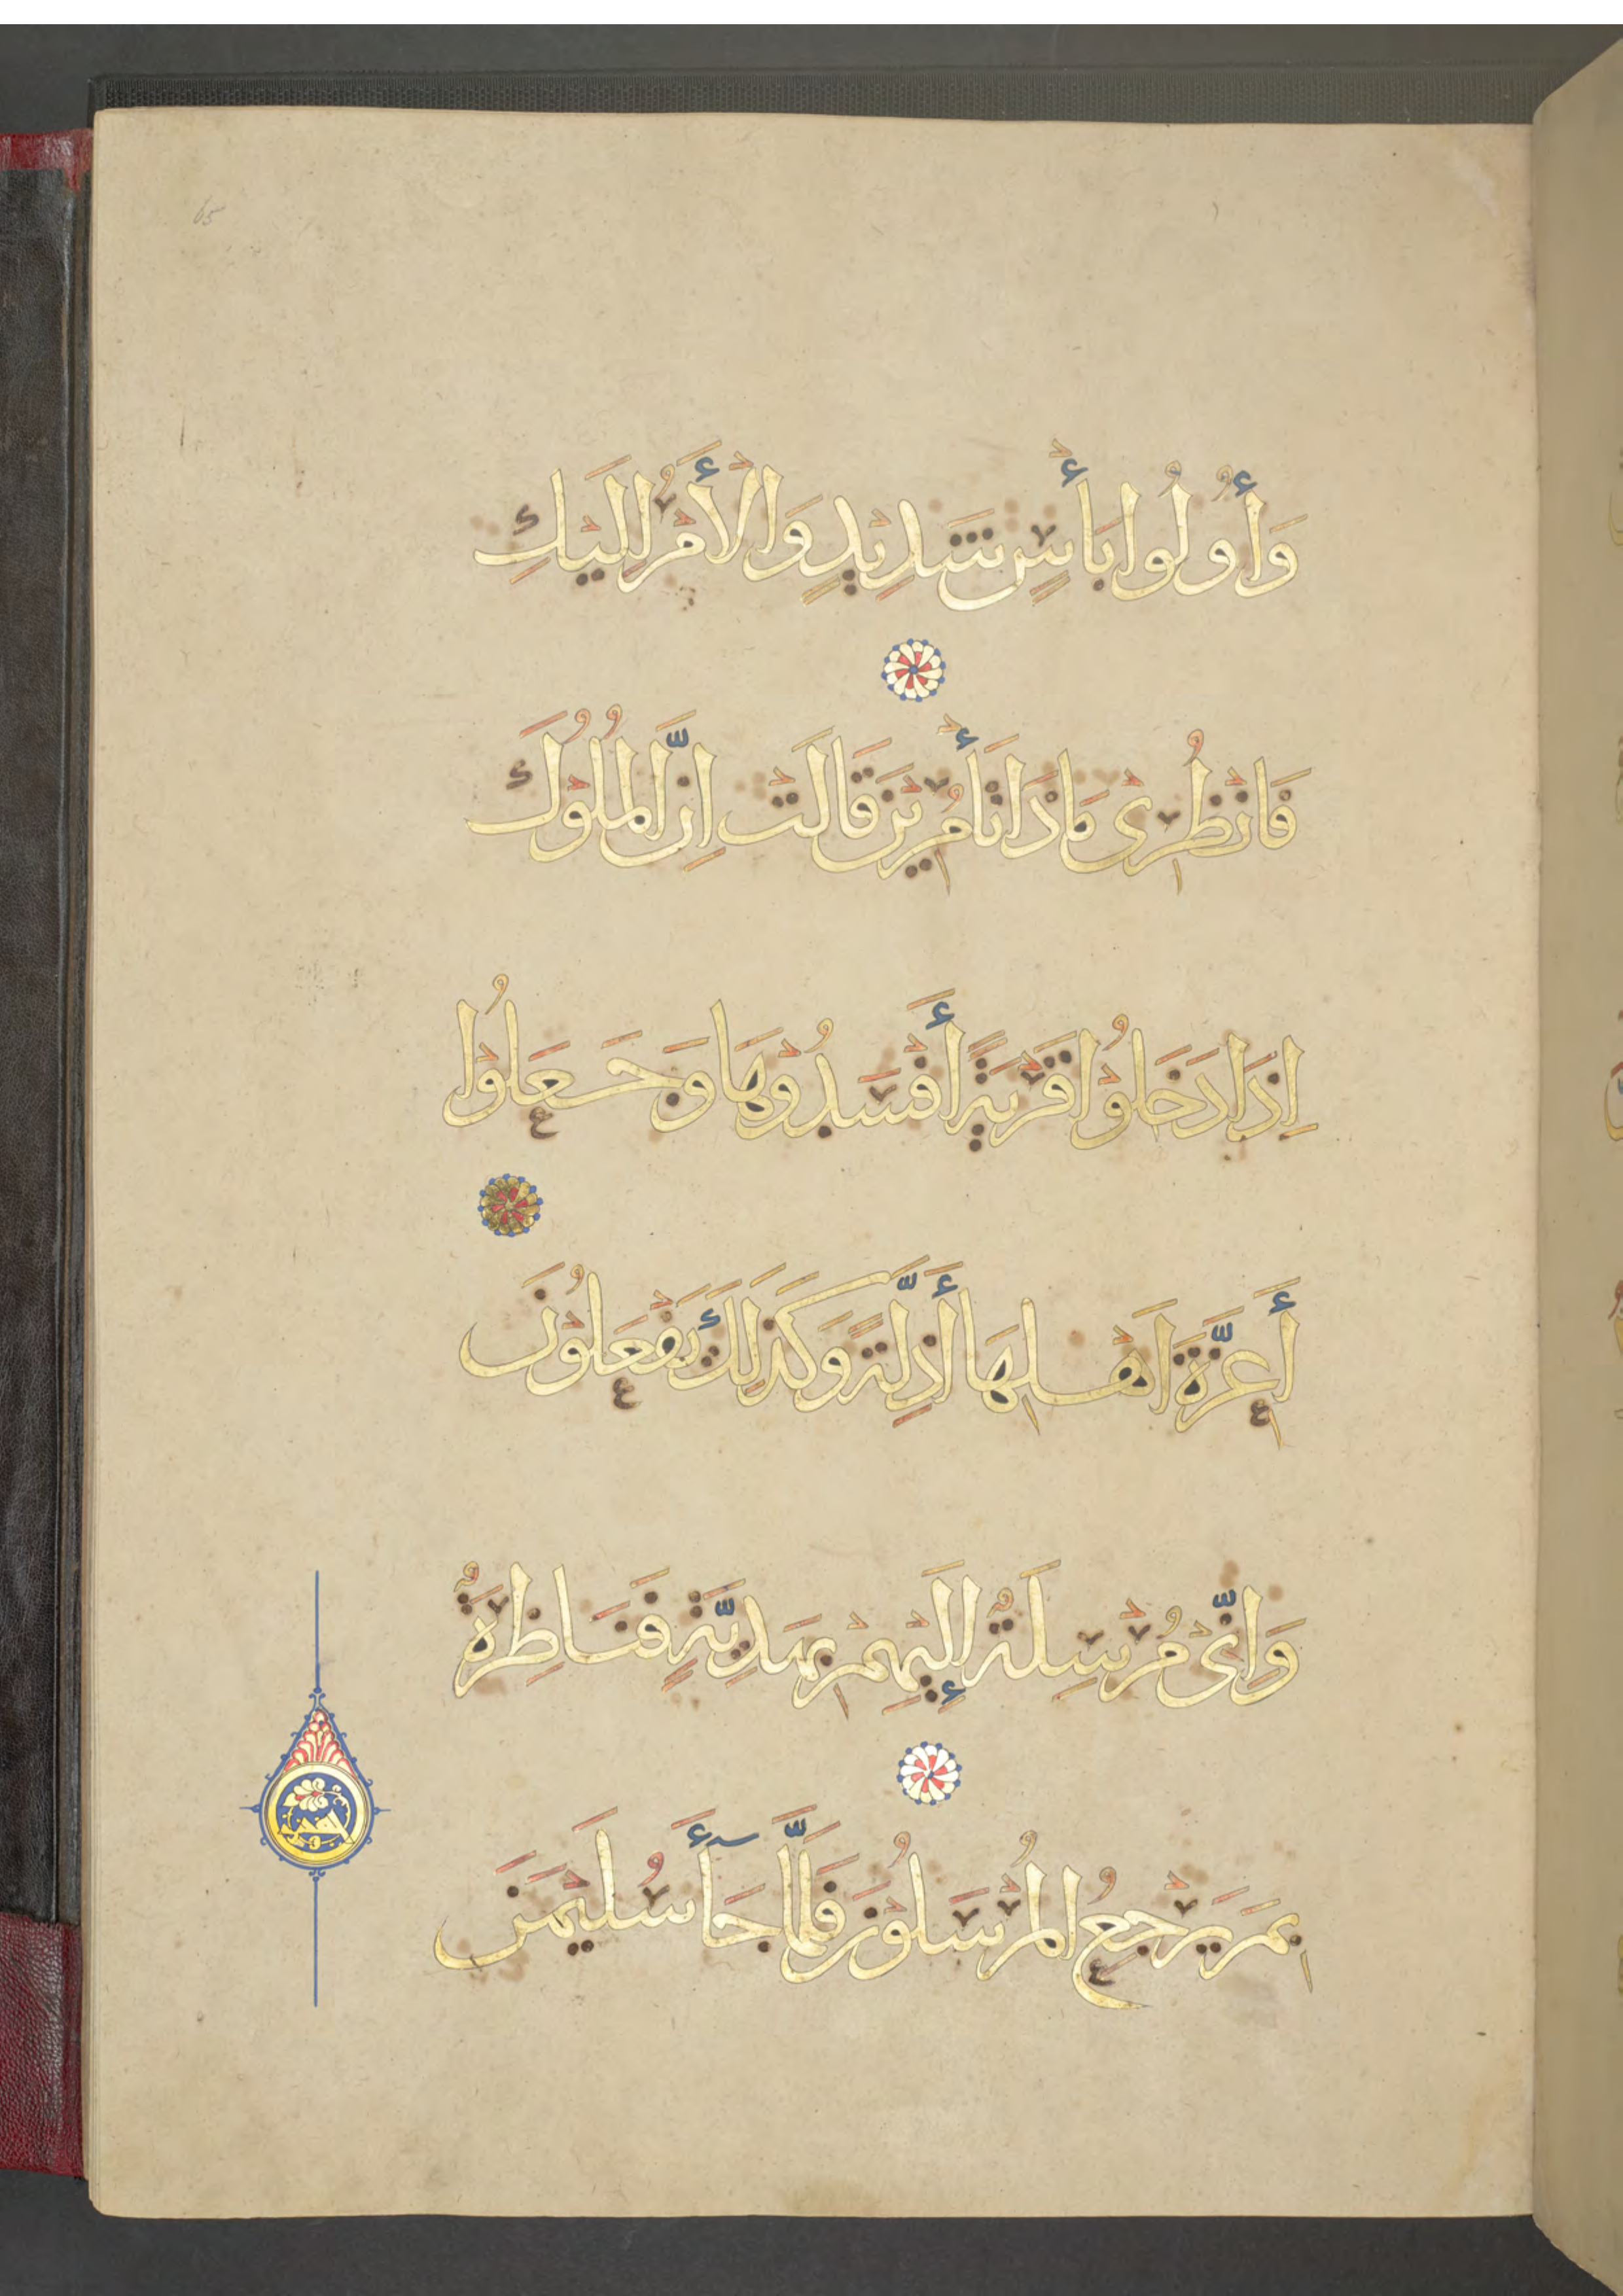 65
وَأُولُوا بَأْسٍ شَدِيْدٍ وَالْأَمْرُ إِلَيْكِ
فَانْظُرِىْ مَاذَا تَأْمُرِيْنَ قَالَتْ اِنَّ الْمُلُوْكَ
اِذَا دَخَلُوْا قَرْيَةً أَفْسَدُوْهَا وَجَعَلُوْا
أَعِزَّةَ اَهْلِهَا أَذِلَّةً وَكَذَلِكَ يَفْعَلُوْنَ
وَاِنِّىْ مُرْسِلَةٌ إِلَيْهِمْ بِهَدِيَّةٍ فَنَاظِرَةٌ
بِمَ يَرْجِعُ الْمُرْسَلُوْنَ فَلَمَّا جَآَّءَ سُلَيْمَنَ